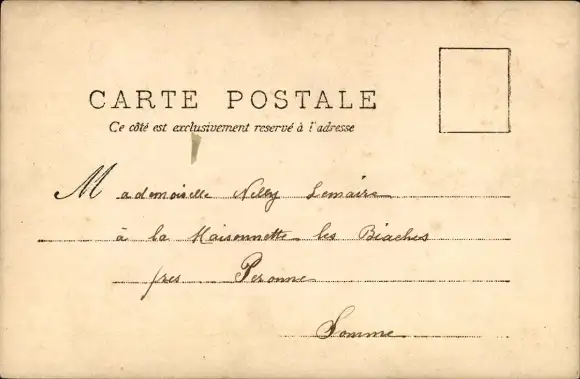 CARTE POSTALE
Ce côté est exclusivement reservé à l'adresse
Mademoiselle Nelly Lemaire
à la Maisonnette les Biaches
pres Peronne
Somme